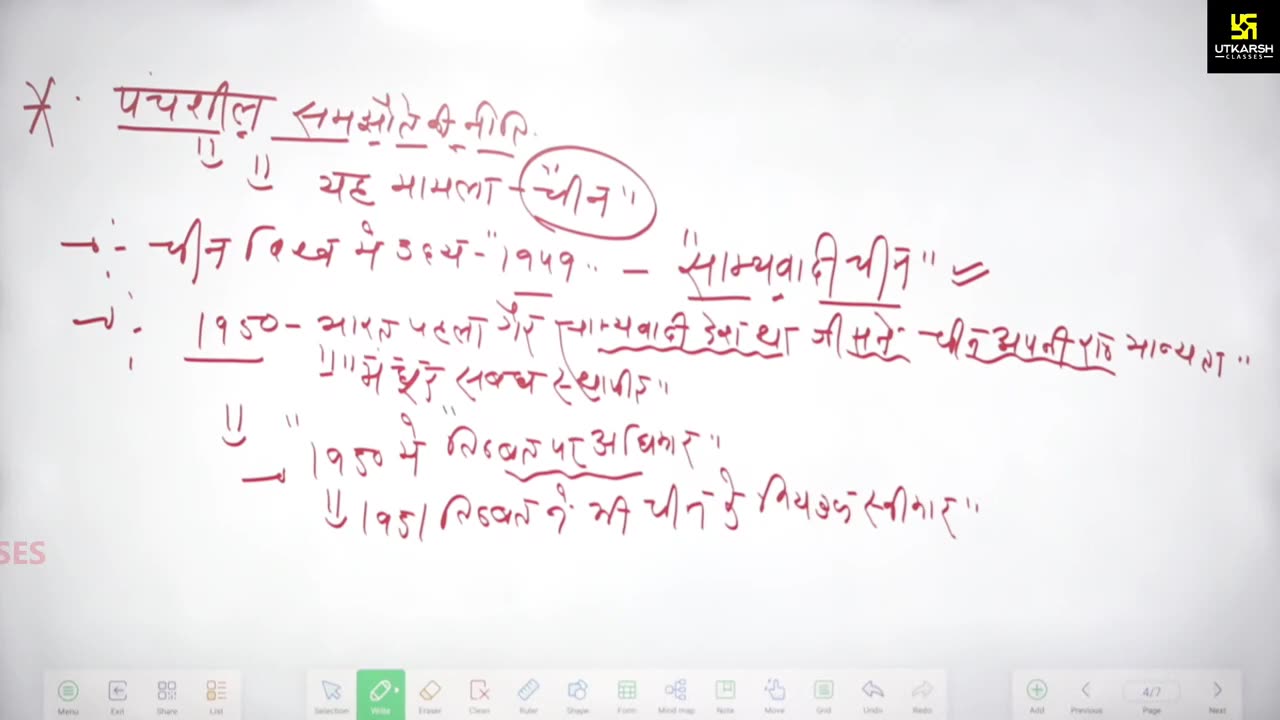 UTKARSH
CLASSES
* पंचशील समझौते की नीति
यह मामला - "चीन"
→ चीन विश्व में उदय - "1949" - "साम्यवादी चीन"
→ 1950 - भारत पहला गैर साम्यवादी देश था जीसने चीन अपनी मान्यता"
संबंध स्थापित"
→ "1950 में "तिब्बत पर अधिकार"
1951 तिब्बत ने भी चीन के नियंत्रण स्वीकार"
SES
Menu Exit Share List Selection Write Eraser Clean Ruler Shape Form Mind map Note Move Grid Undo Redo Add Previous 4/7 Page Next